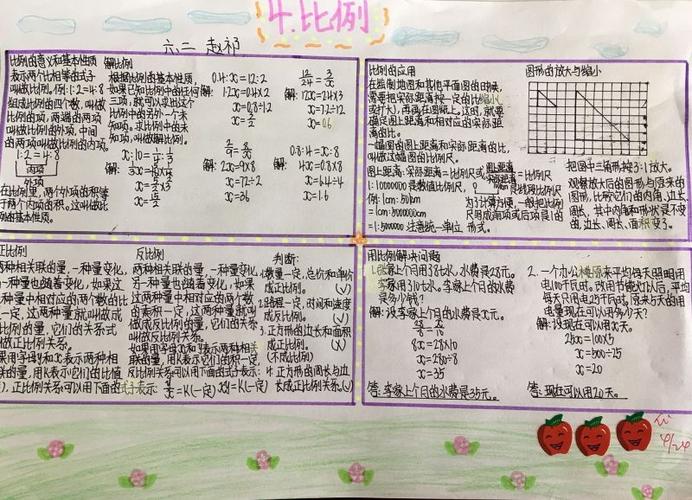 4.比例
六二 赵祁
比例的意义和基本性质
表示两个比相等的式子
叫做比例。例:1:2=4:8
组成比例的四个数,叫做
比例的项,两端的两项
叫做比例的外项,中间
的两项叫做比例的内项。
1:2=4:8
内项
外项
在比例里,两个外项的积等
于两个内项的积。这叫做比
例的基本性质。
解比例
根据比例的基本性质,
如果已知比例中的任何
三项,就可以求出这个
比例中的另外一个未
知项。求比例中的未
知项,叫做解比例。
0.4:x=1.2:2
解:1.2x=0.4×2
x=0.8÷1.2
x=2/3
12/2.4=3/x
解:12x=2.4×3
x=7.2÷12
x=0.6
2/9=8/x
解:2x=9×8
x=72÷2
x=36
0.8:4=x:8
解:4x=0.8×8
x=6.4÷4
x=1.6
比例的应用
在绘制地图和其他平面图的时候,
需要把实际距离按一定的比缩小
(或扩大),再画在图纸上。这时,就要
确定图上距离和相对应的实际距
离的比。
一幅图的图上距离和实际距离的比,
叫做这幅图的比例尺。
图上距离:实际距离=比例尺或图上距离/实际距离=比例尺
1:10000000是数值比例尺,
是线段比例尺
例:1cm:50km
=1cm:5000000cm
=1:5000000 注意统一单位
为计算方便,一般把比例
尺写成前项或后项是1的
形式。
图形的放大与缩小
把图中三角形按3:1放大。
观察放大后的图形与原来的
图形,比较它们的内角、边长、
周长,其中内角和形状是不变
的,边长、周长、面积变了。
正比例
两种相关联的量,一种量变化,
另一种量也随着变化,如果这
两种量中相对应的两个数的比
值一定,这两种量就叫做成
正比例的量,它们的关系叫
做正比例关系。
如果用字母x和y表示两种相
关联的量,用K表示它们的比值
(一定),正比例关系可以用下面的式子表示:y/x=K(一定)
反比例
两种相关联的量,一种量变化,
另一种量也随着变化,如果
这两种量中相对应的两个数
的乘积一定,这两种量就叫
做成反比例的量,它们的关系
叫做反比例关系。
如果用字母x和y表示两种相关
联的量,用K表示它们的积(一定),
反比例关系可以用下面的式子表示:
xy=K(一定)
判断:
1.数量一定,总价和单价
成正比例。 (√)
2.路程一定,时间和速度
成反比例。 (√)
3.正方形的边长和面积
成正比例。 (×)
(不成比例)
4.正方形的周长与边
长成正比例关系(√)
用比例解决问题
1.张家上个月用8t水,水费是28元。
李家用了10t水,李家上个月的水费
是多少钱?
解:设李家上个月的水费是x元。
28/8=x/10
8x=28×10
x=280÷8
x=35
答:李家上个月的水费是35元。
2.一个办公楼原来平均每天照明用
电100千瓦时。改用节能灯以后,平均
每天只用电25千瓦时,原来5天的用
电量现在可以用多少天?
解:设现在可以用x天。
25x=100×5
x=500÷25
x=20
答:现在可以用20天。
4/24